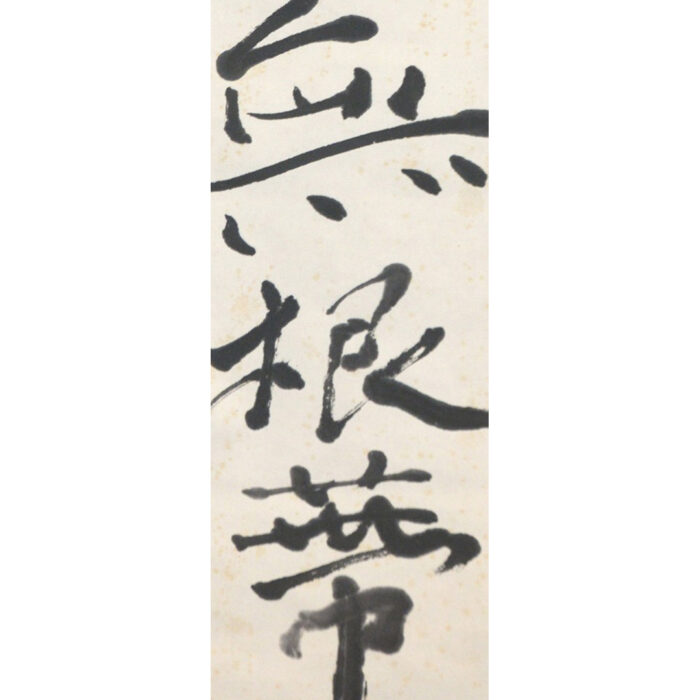 無根蔕